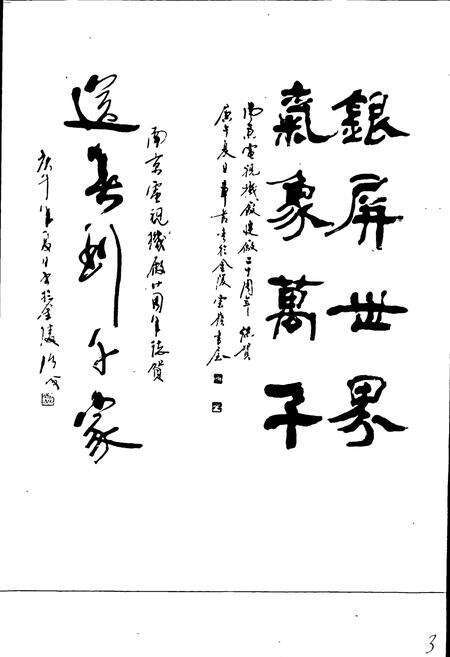 銀屏世界
氣象萬千
南京電視機廠建廠二十周年誌賀
庚午夏日 於金陵
送春到千家
南京電視機廠廿周年誌賀
庚午年夏日書於金陵
3